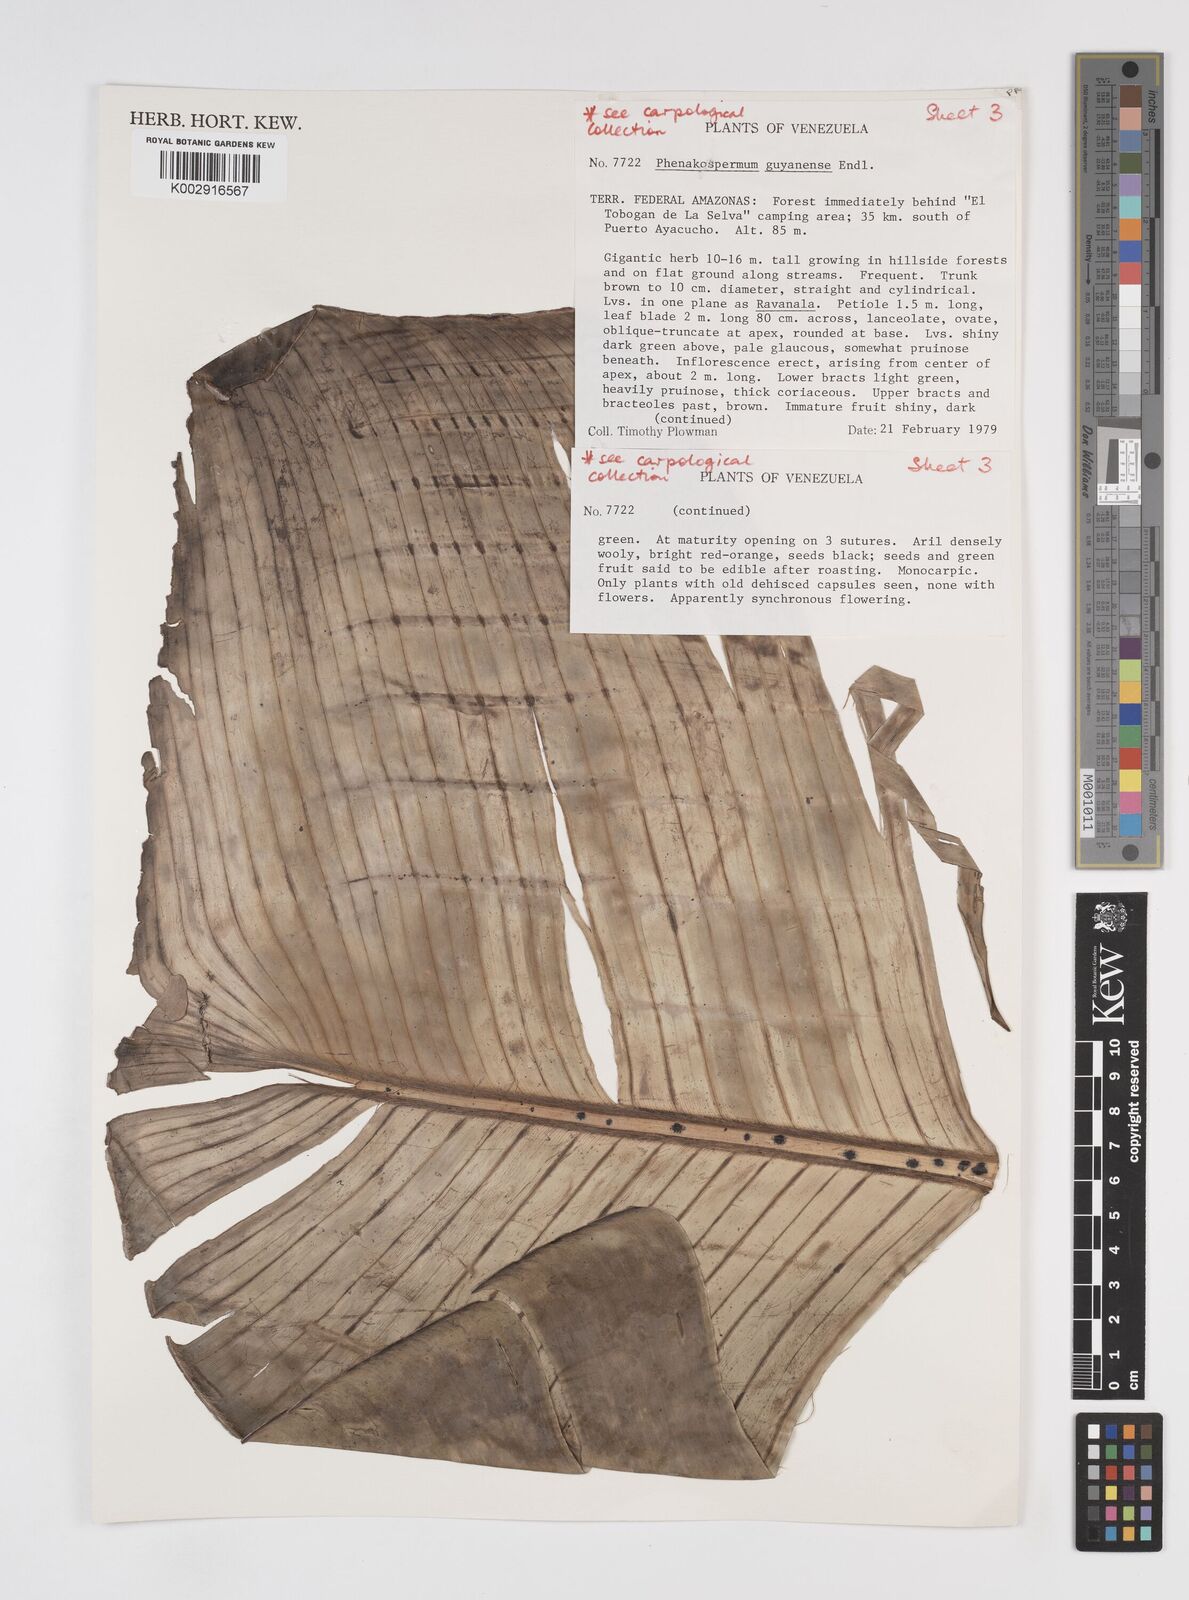 HERB. HORT. KEW.
ROYAL BOTANIC GARDENS KEW
K002916567
* see carpological
collection
Sheet 3
PLANTS OF VENEZUELA
No. 7722 Phenakospermum guyanense Endl.
TERR. FEDERAL AMAZONAS: Forest immediately behind "El
Tobogan de La Selva" camping area; 35 km. south of
Puerto Ayacucho. Alt. 85 m.
Gigantic herb 10-16 m. tall growing in hillside forests
and on flat ground along streams. Frequent. Trunk
brown to 10 cm. diameter, straight and cylindrical.
Lvs. in one plane as Ravanala. Petiole 1.5 m. long,
leaf blade 2 m. long 80 cm. across, lanceolate, ovate,
oblique-truncate at apex, rounded at base. Lvs. shiny
dark green above, pale glaucous, somewhat pruinose
beneath. Inflorescence erect, arising from center of
apex, about 2 m. long. Lower bracts light green,
heavily pruinose, thick coriaceous. Upper bracts and
bracteoles past, brown. Immature fruit shiny, dark
(continued)
Coll. Timothy Plowman Date: 21 February 1979
* see carpological
collection
Sheet 3
PLANTS OF VENEZUELA
No. 7722 (continued)
green. At maturity opening on 3 sutures. Aril densely
wooly, bright red-orange, seeds black; seeds and green
fruit said to be edible after roasting. Monocarpic.
Only plants with old dehisced capsules seen, none with
flowers. Apparently synchronous flowering.
inches
Don Williams
M001011
centimeters
Kew
Royal Botanic Gardens
0 1 2 3 4 5 6 7 8 9 10
cm
copyright reserved